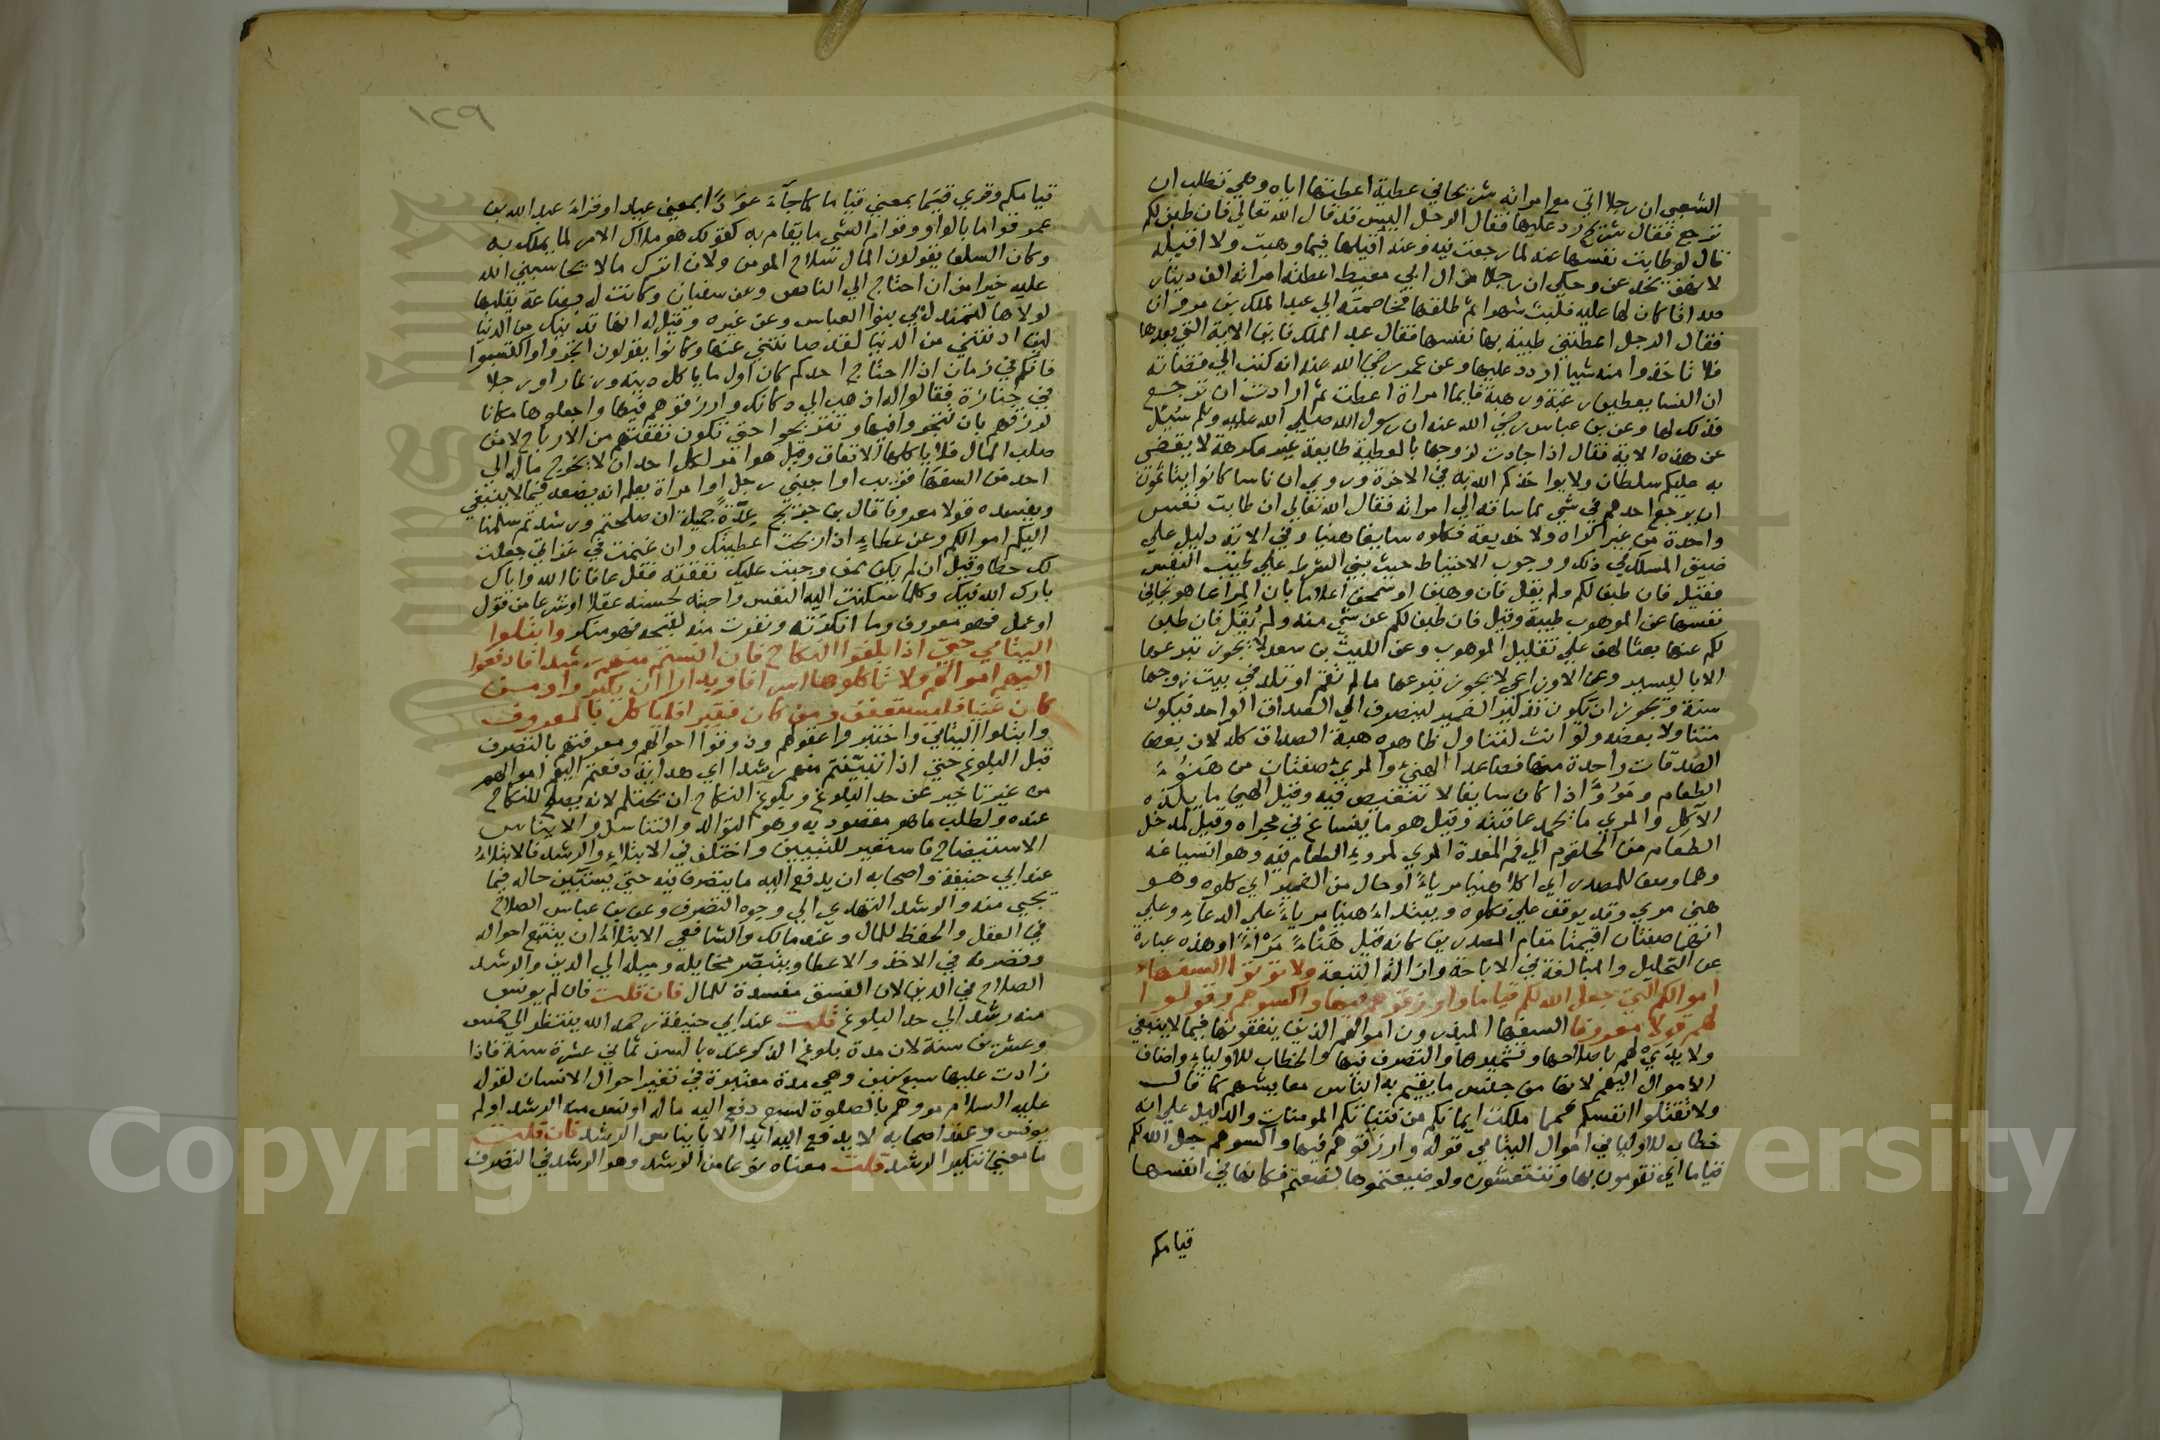 الشعبي ان رجلا اتي مع امراته شريحا في عطية اعطتها اياه وهي تطلب ان
ترجع فقال شريح رد عليها فقال الرجل اليس قد قال الله تعالي فان طبن لكم
قال لو طابت نفسها عنه لما رجعت فيه وعنه اقيلها فيما وهبت ولا اقيله
لانهن يخدعن وحكي ان رجلا من ال ابي معيط اعطته امراته الف دينار
صداقا كان لها عليه فلبث شهرا ثم طلقها فخاصمته الي عبد الملك بن مروان
فقال الرجل اعطتني طيبة بها نفسها فقال عبد الملك فاين الاية التي بعدها
فلا تاخذوا منه شيا اردد عليها وعن عمر رضي الله عنه انه كتب الي قضاته
ان النسا يعطين رغبة ورهبة فايما امراة اعطت ثم ارادت ان ترجع
فذلك لها وعن بن عباس رضي الله عنه ان رسول الله صلي الله عليه وسلم سئل
عن هذه الاية فقال اذا جادت لزوجها بالعطية طايعة غير مكرهة لا يقضي
به عليكم سلطان ولا يواخذكم الله به في الاخرة وروي ان ناسا كانوا يتاثمون
ان يرجع احدهم في شي مما ساقه الي امراته فقال الله تعالي ان طابت نفس
واحدة من غير اكراه ولا خديعة فكلوه سايغا هنيا وفي الاية دليل علي
ضيق المسلك في ذلك ووجوب الاحتياط حيث بني الشرط علي طيب النفس
فقيل فان طبن لكم ولم يقل فان وهبن او سمحن اعلاما بان المراعا هو تجافي
نفسها عن الموهوب طيبة وقيل فان طبن لكم عن شي منه ولم يقل فان طبن
لكم عنها بعثا لهن علي تقليل الموهوب وعن الليث بن سعد لا يجوز تبرعها
الا باليسير وعن الاوزاعي لا يجوز تبرعها ما لم تقم او تلد في بيت زوجها
سنة ويجوز ان يكون تذكير الضمير لينصرف الي الصداق الواحد فيكون
متناولا بعضه ولو انث لتناول ظاهره هبة الصداق كله لان بعض
الصدقات واحدة منها فصاعدا الهنئ والمري صفتان من هنوء
الطعام ومرؤ اذا كان سايغا لا تنغيص فيه وقيل الهني ما يلذه
الآكل والمري ما يحمد عاقبته وقيل هو ما ينساغ في مجراه وقيل لمدخل
الطعام من الحلقوم الي فم المعدة المري لمروء الطعام فيه وهو انسياغه
وهما وصف للمصدر اي اكلا هنيا مرياء او حال من الضمير اي كلوه وهو
هني مري وقد يوقف علي فكلوه ويبتداء هنيا مرياء علي الدعاء وعلي
انهما صفتان اقيمتا مقام المصدرين كانه قيل هناء مراء وهذه عبارة
عن التحليل والمبالغة في الاباحة وازالة التبعة ولا توتوا السفهاء
اموالكم التي جعل الله لكم قياما وارزقوهم فيها واكسوهم وقولوا
لهم قولا معروفا السفها المبذرون اموالهم الذين ينفقونها فيما لا ينبغي
ولا يدي لهم باصلاحها وتثميرها والتصرف فيها والخطاب للاولياء واضاف
الاموال اليهم لانها من جنس ما يقيم به الناس معايشهم كما قال
ولا تقتلوا انفسكم فمما ملكت ايمانكم من فتياتكم المومنات والدليل علي انه
خطاب للاوليا في اموال اليتامي قوله وارزقوهم فيها واكسوهم جعل الله لكم
قياما اي تقومون بها وتنتعشون ولو ضيعتموها لضعتم فكانها في انفسها
قيامكم
١٢٩
قيامكم وقري قيما بمعني قياما كما جآء عوذا بمعني عياذا وقراء عبد الله بن
عمر قواما بالواو وقوام الشي ما يقام به كقولك هو ملاك الامر لما يملك به
وكان السلف يقولون المال سلاح المومن ولان اترك مالا يحاسبني الله
عليه خير من ان احتاج الي الناس وعن سفيان وكانت له بضاعة يقلبها
لولاها لتمندل بي بنوا العباس وعن غيره وقيل له انها تدنيك من الدنيا
لين ادنتني من الدنيا لقد صانتني عنها وكانوا يقولون اتجروا واكتسبوا
فانكم في زمان اذا احتاج احدكم كان اول ما ياكل دينه وربما راوا رجلا
في جنازة فقالوا له اذهب الي دكانك وارزقوهم فيها واجعلوها مكانا
لرزقهم بان تتجروا فيها وتتربحوا حتي تكون نفقتهم من الارباح لا من
صلب المال فلا ياكلها الانفاق وقيل هو امر لكل احد ان لا يخرج ماله الي
احد من السفها قريب او اجنبي رجل او امراة يعلم انه يضعه فيما لا ينبغي
ويفسده قولا معروفا قال بن جريج عدة جميلة ان صلحتم ورشدتم سلمنا
اليكم اموالكم وعن عطاء اذا ربحت اعطيتك وان غنمت في غزاتي جعلت
لك حظا وقيل ان لم يكن ممن وجبت عليك نفقته فقل عافانا الله واياك
بارك الله فيك وكلما سكنت اليه النفس واحبته لحسنه عقلا او شرعا من قول
او عمل فهو معروف وما انكرته ونفرت منه لقبحه فهو منكر وابتلوا
اليتامي حتي اذا بلغوا النكاح فان انستم منهم رشدا فادفعوا
اليهم اموالهم ولا تاكلوها اسرافا وبدارا ان يكبروا ومن
كان غنيا فليستعفف ومن كان فقيرا فلياكل بالمعروف
وابتلوا اليتامي واختبروا عقولهم وذوقوا احوالهم ومعرفتهم بالتصرف
قبل البلوغ حتي اذا تبينتم منهم رشدا اي هداية دفعتم اليهم اموالهم
من غير تاخير عن حد البلوغ وبلوغ النكاح ان يحتلم لانه يصلح للنكاح
عنده ولطلب ما هو مقصود به وهو التوالد والتناسل والايناس
الاستيضاح فاستعير للتبيين واختلف في الابتلاء والرشد فالابتلاء
عند ابي حنيفة واصحابه ان يدفع اليه ما يتصرف فيه حتي يستبين حاله فيما
يجيي منه والرشد التهدي الي وجوه التصرف وعن بن عباس الصلاح
في العقل والحفظ للمال وعند مالك والشافعي الابتلاء ان يتتبع احواله
وتصرفه في الاخذ والاعطا ويتبصر مخايله وميله الي الدين والرشد
الصلاح في الدين لان الفسق مفسدة للمال فان قلت فان لم يونس
منه رشد الي حد البلوغ قلت عند ابي حنيفة رحمه الله ينتظر الي خمس
وعشرين سنة لان مدة بلوغ الذكر عنده بالسن ثماني عشرة سنة فاذا
زادت عليها سبع سنين وهي مدة معتبرة في تغير احوال الانسان لقوله
عليه السلام مروهم بالصلوة لسبع دفع اليه ماله اونس منه الرشد او لم
يونس وعند اصحابه لا يدفع اليه ابدا الا بايناس الرشد فان قلت
ما معني تنكير الرشد قلت معناه نوعا من الرشد وهو الرشد في التصرف
Copyright © King Saud University